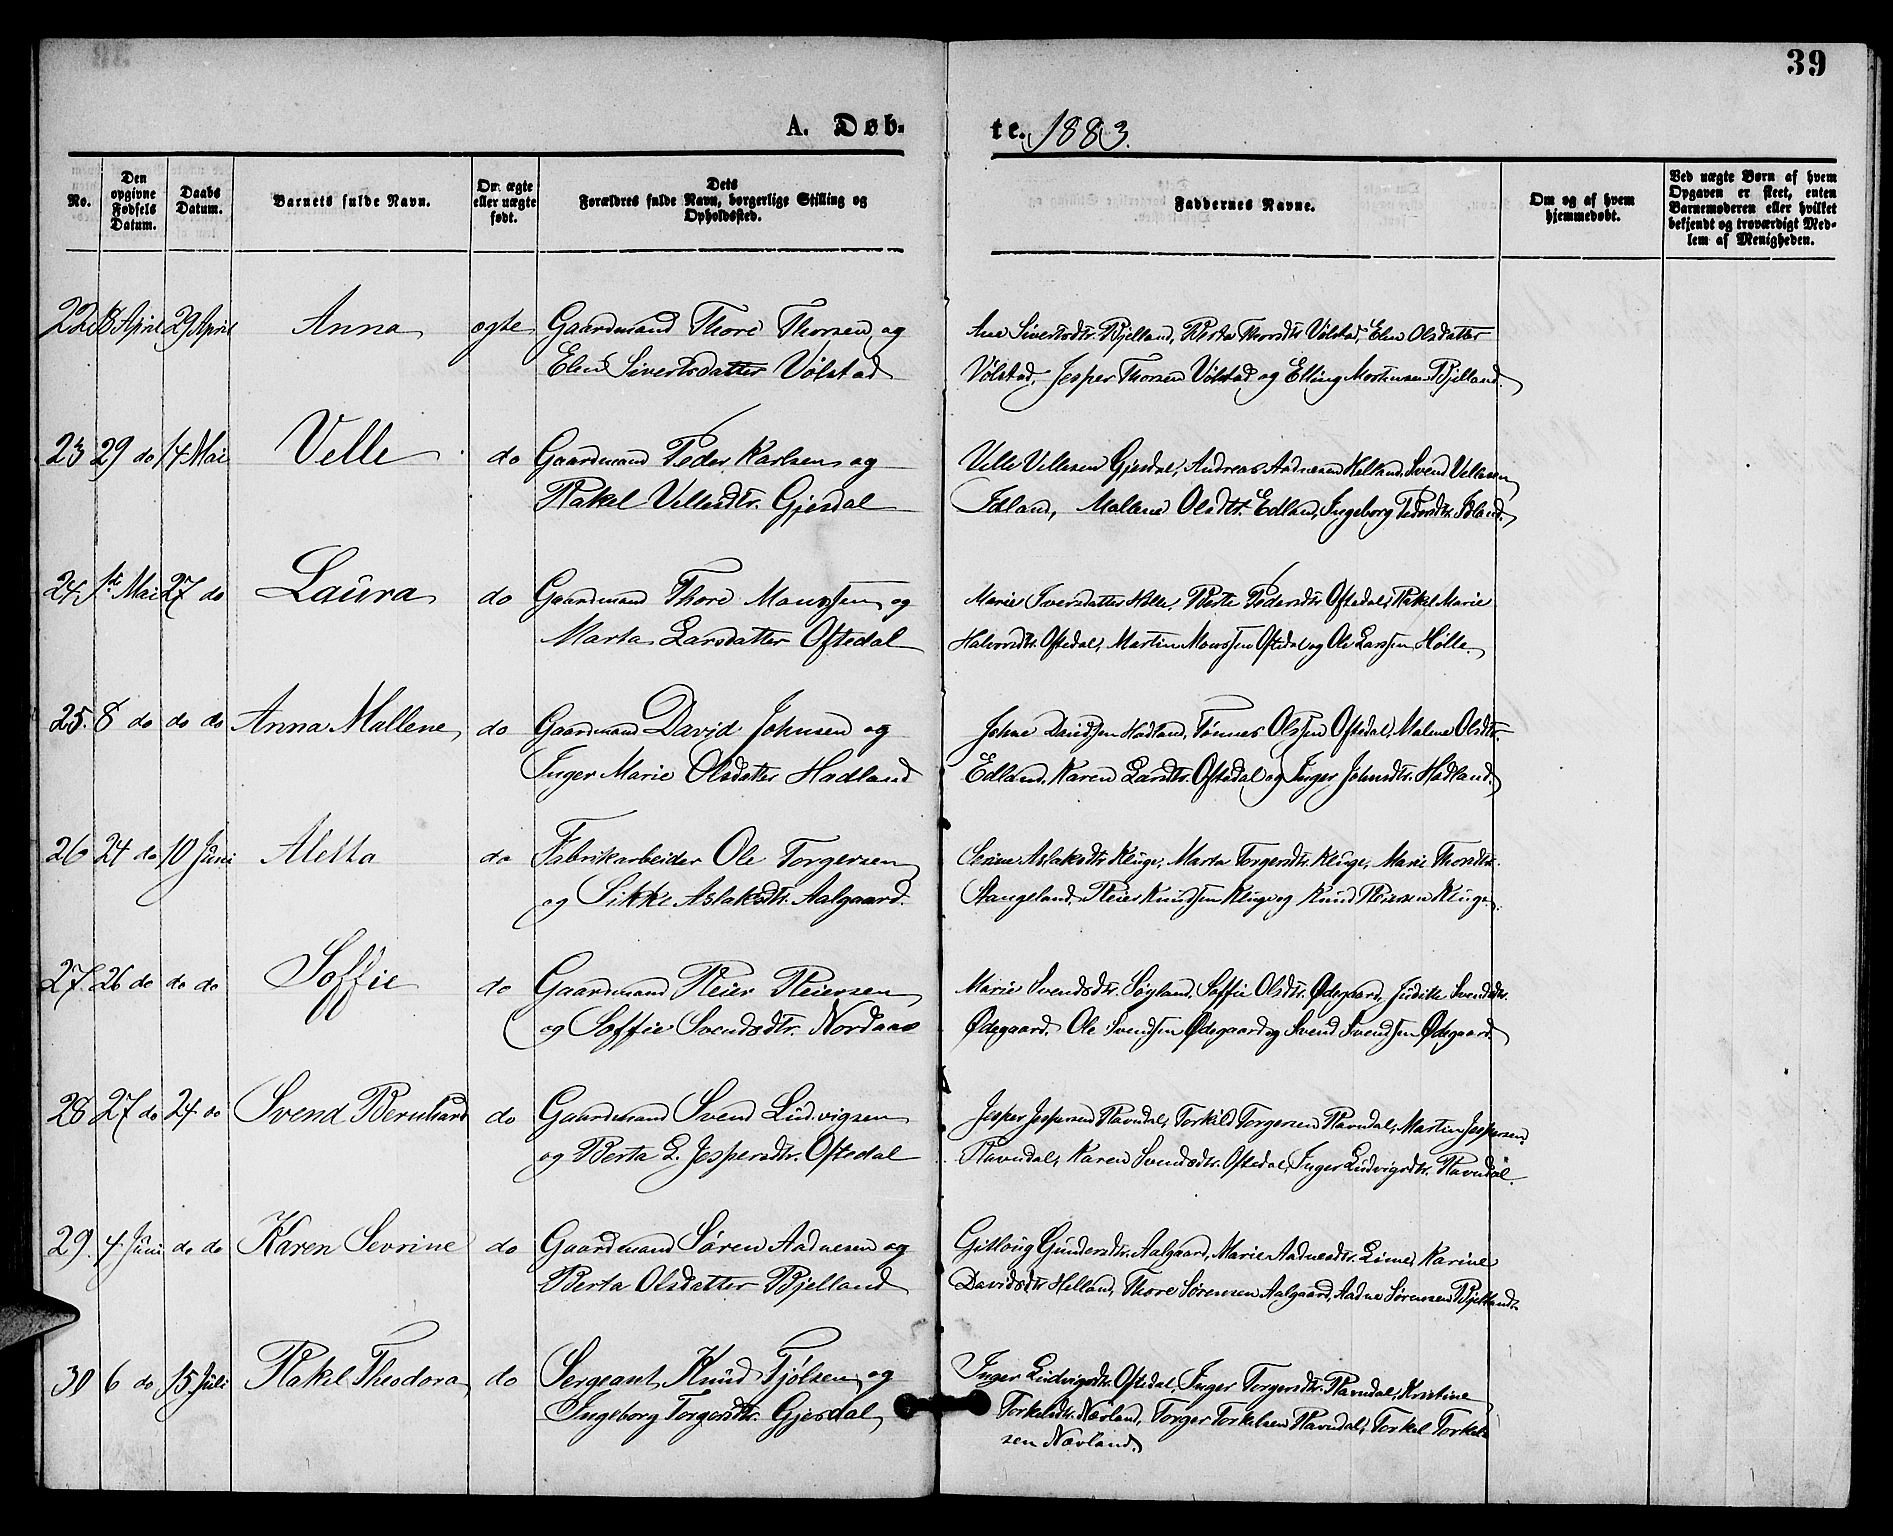 39
A. Døb-
te. 1883.
No.
Den opgivne Fødsels Datum.
Daabs Datum.
Barnets fulde Navn.
Om ægte eller uægte født.
Dets Forældres fulde Navn, borgerlige Stilling og Opholdssted.
Faddernes Navne.
Om og af hvem hjemmedøbt.
Ved uægte Børn af hvem Opgaven er skeet, enten Barnemoderen eller hvilket bekjendt og troværdigt Medlem af Menigheden.
22 13 April 29 April Anna ægte Gaardmand Thore Thorsen og
Elen Sivertsdatter Vølstad
Ane Sivertsdtr. Bjelland, Berta Thorsdtr. Vølstad, Elen Olsdatter
Vølstad, Jesper Thorsen Vølstad og Elling Mortensen Bjelland.
23 29 do 14 Mai Velle do Gaardmand Peder Karlsen og
Rakel Vellesdtr. Gjesdal
Velle Vellesen Gjesdal, Andreas Aadnesen Kelland, Svend Vellesen
Idland, Mallene Olsdtr. Edland, Ingeborg Pedersdtr. Idland.
24. 1ste Mai 27 do Laura do Gaardmand Thore Monssen og
Marta Larsdatter Oftedal
Marie Iversdatter Hølle, Berte Pedersdtr. Oftedal, Rakel Marie
Halvorsdtr. Oftedal, Martin Monssen Oftedal og Ole Larssen Hølle.
25. 8 do do do Anna Mallene do Gaardmand David Johnsen og
Inger Marie Olsdatter Hadland
Johne Davidsen Hadland, Tønnes Olssen Oftedal, Malene Olsdtr.
Edland, Karen Larsdtr. Oftedal og Inger Johnsdtr. Hadland.
26 24 do 10 Juni Aletta do Fabrikarbeider Ole Torgersen
og Sikke Aslaksdtr. Aalgaard.
Serine Aslaksdtr. Kluge, Marta Torgersdtr. Kluge, Marie Thorsdtr.
Stangeland, Reier Knudsen Kluge og Knud Reiersen Kluge.
27. 26 do do do Soffie do Gaardmand Reier Reiersen
og Soffie Svendsdtr. Nordaas
Marie Svendsdtr. Søyland, Soffie Olsdtr. Ødegaard, Judite Svendsdtr.
Ødegaard, Ole Svendsen Ødegaard og Svend Svendsen Ødegaard.
28 27 do 24 do Svend Bernhard do Gaardmand Svend Ludvigsen
og Berta L. Jespersdtr. Oftedal
Jesper Jespersen Ravndal, Torkild Torgersen Ravndal, Martin Jespersen
Ravndal, Karen Svendsdtr. Oftedal, Inger Ludvigsdtr. Ravndal.
29. 4 Juni do do Karen Sevrine do Gaardmand Søren Aadnesen og
Berta Olsdatter Bjelland
Gitlaug Gundersdtr. Aalgaard, Marie Aadnesdtr. Lime, Karine
Davidsdtr. Helland, Thore Sørensen Aalgaard, Aadne Sørensen Bjelland.
30 6 do 15 Juli Rakel Theodora do Sergeant Knud Tjølsen og
Ingeborg Torgersdtr. Gjesdal
Inger Ludvigsdtr. Oftedal, Inger Torgersdtr. Ravndal, Kristine
Torkelsdtr. Nævland, Torger Torkelsen Ravndal, Torkel Torkel-
sen Nævland.